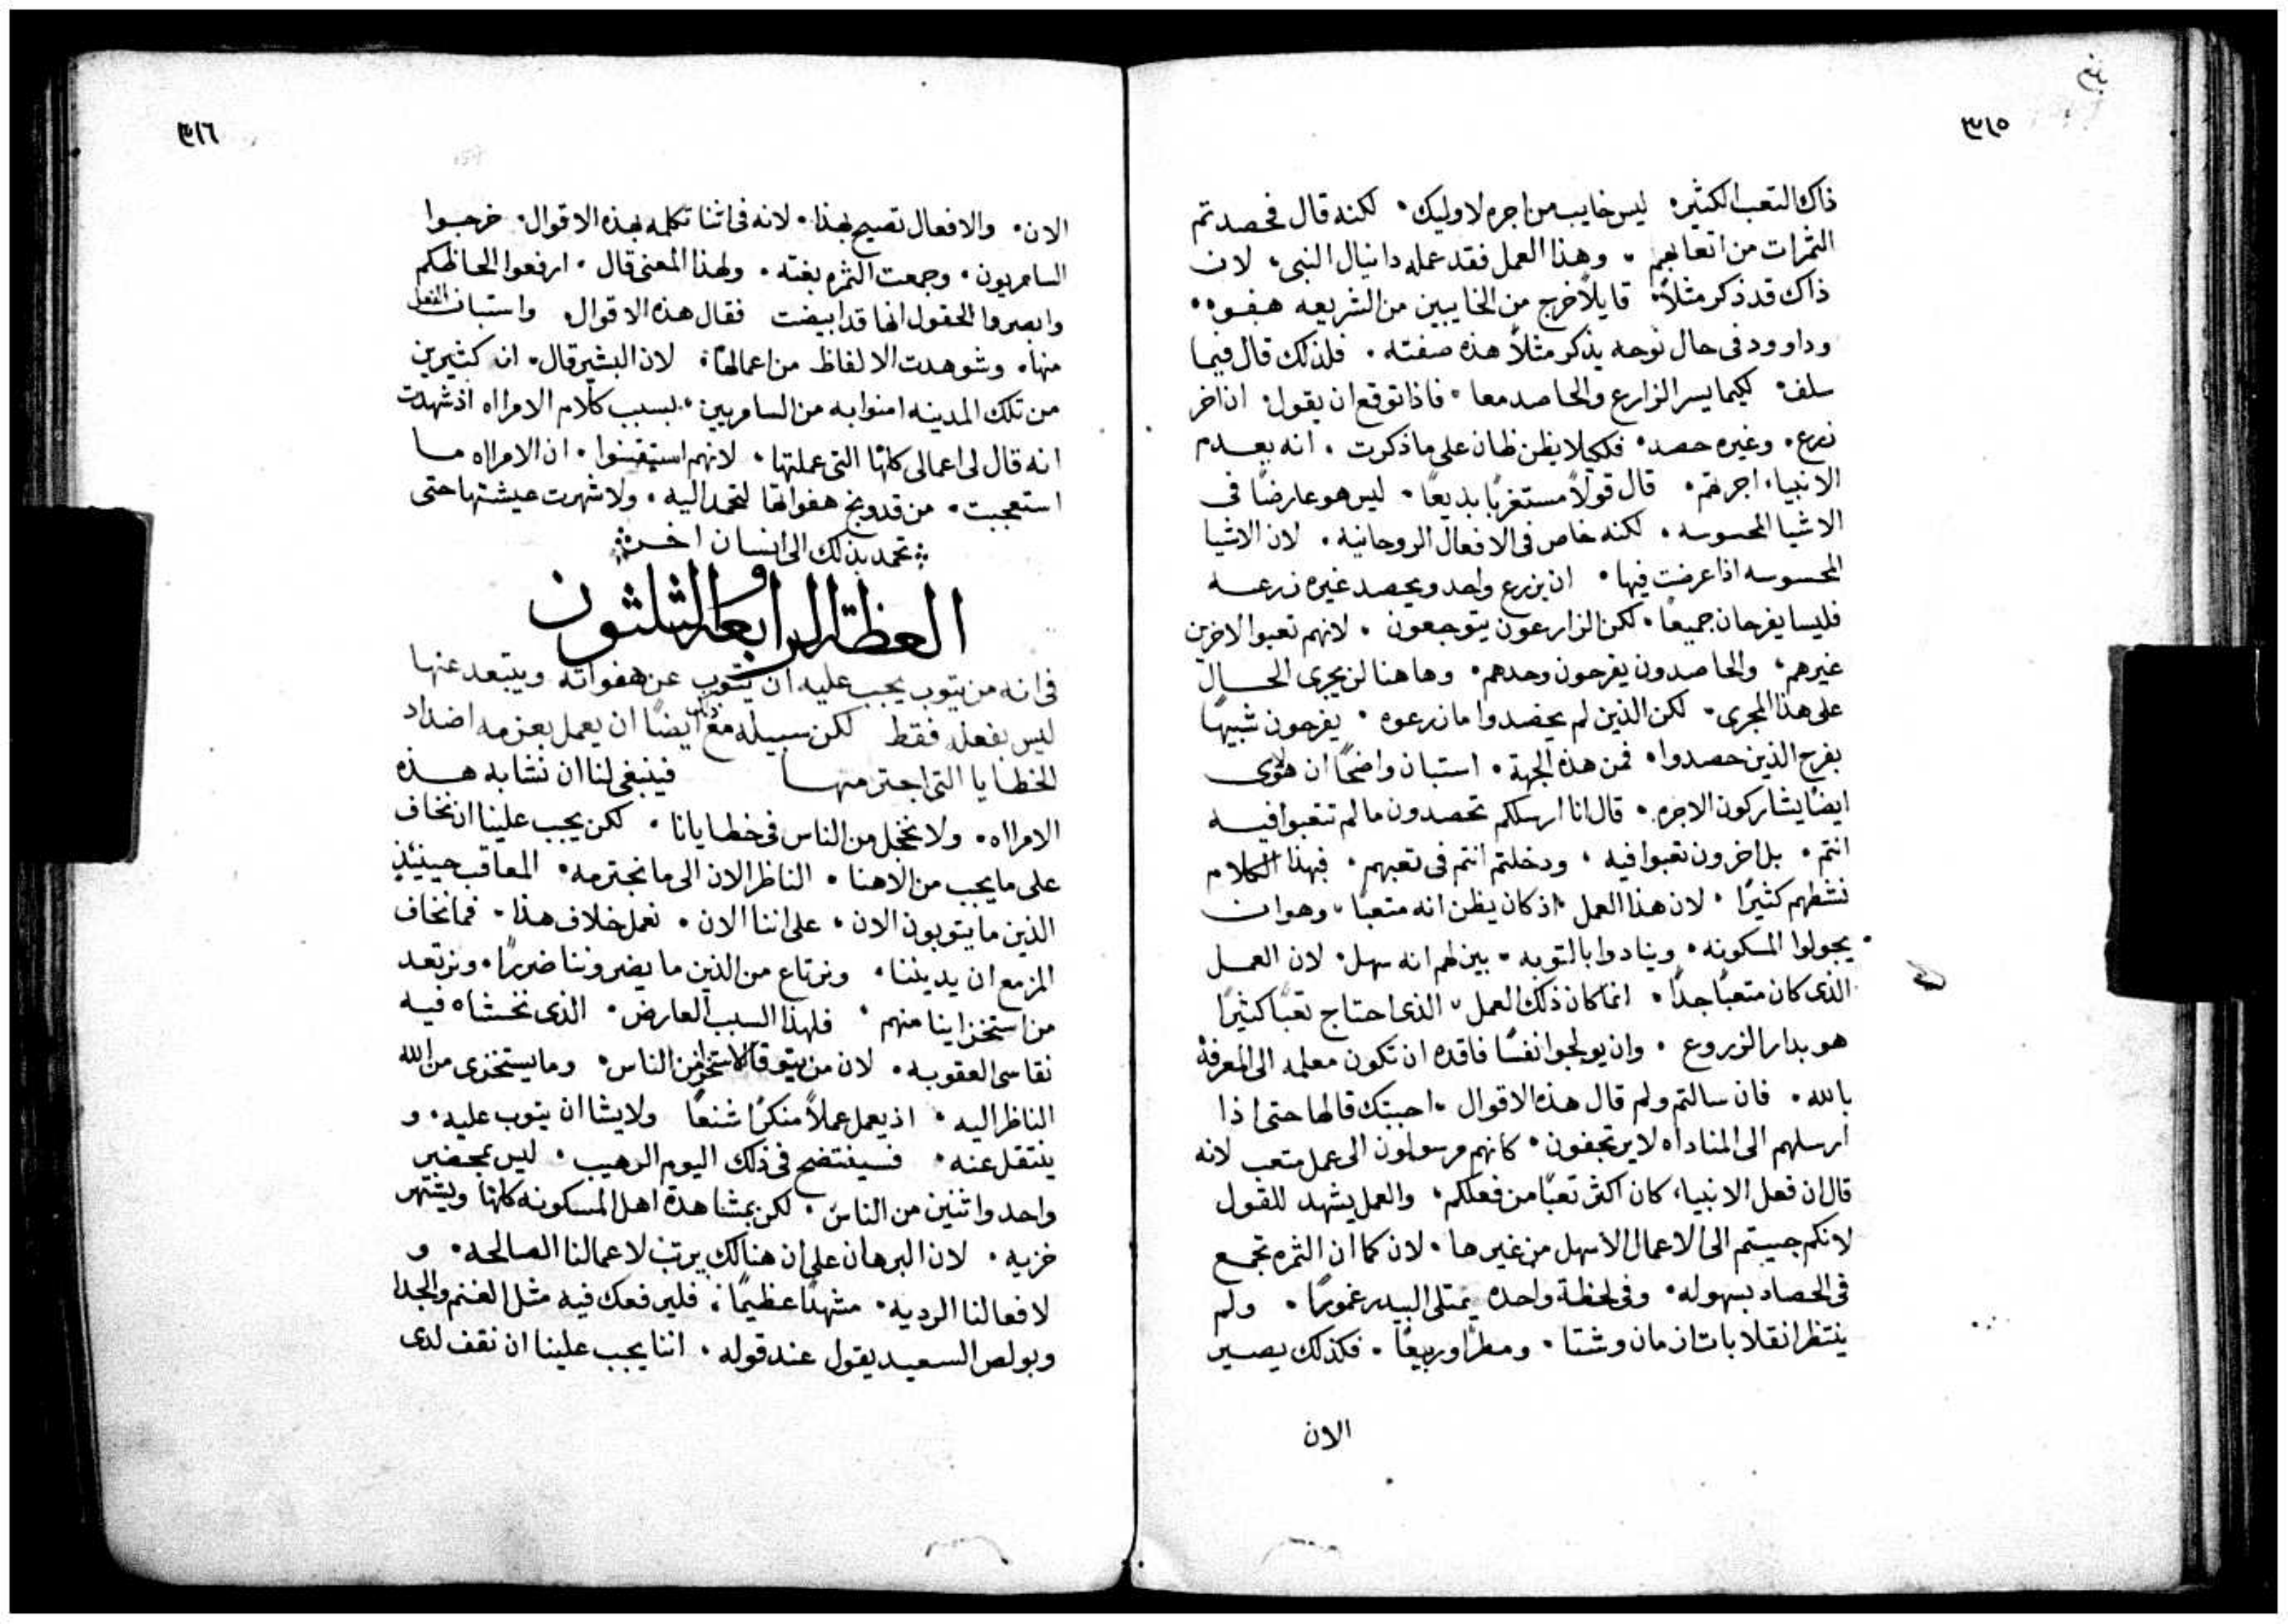 ٣١٥
ذاك التعب الكثير۰ ليس خايب من اجره لاوليك۰ لكنه قال فحصدتم
الثمرات من اتعابهم ۰ وهذا العمل فقد عمله دانيال النبى، لان
ذاك قد ذكر مثلاً۰ قايلاً خرج من الخايبين من الشريعه هفوه۰
وداوود فى حال نوحه يذكر مثلاً هذه صفته ۰ فلذلك قال فيما
سلف۰ لكيما يسر الزارع والحاصد معا ۰ فاذا توقع ان يقول۰ ان اخر
زرع۰ وغيره حصد۰ فلكيلا يظن ظان على ما ذكرت ۰ انه يعدم
الانبياء اجرتهم۰ قال قولاً مستغربًا بديعًا ۰ ليس هو عارضًا فى
الاشيا المحسوسه ۰ لكنه خاص فى الافعال الروحانيه ۰ لان الاشيا
المحسوسه اذا عرضت فيها ۰ ان يزرع واحد ويحصد غيره زرعه
فليسا يفرحان جميعًا ۰ لكن الزارعون يتوجعون ۰ لانهم تعبوا لاخرين
غيرهم، والحاصدون يفرحون وحدهم۰ وهاهنا لن يجرى الحال
على هذا المجرى۰ لكن الذين لم يحصدوا ما زرعوه ۰ يفرحون شبيهًا
بفرح الذين حصدوا۰ فمن هذه الجهة ۰ استبان واضحًا ان هولاى
ايضًا يشاركون الاجره ۰ قال انا ارسلكم تحصدون ما لم تتعبوا فيه
انتم ۰ بل اخرون تعبوا فيه ، ودخلتم انتم فى تعبهم ۰ فبهذا الكلام
نشطهم كثيرًا ۰ لان هذا العمل ۰ اذ كان يظن انه متعبًا ۰ وهو ان
يجولوا المسكونه ۰ وينادوا بالتوبه ۰ بين لهم انه سهل۰ لان العمل
الذى كان متعبًا جدًا ۰ انما كان ذلك العمل ۰ الذى احتاج تعبًا كثيرًا
هو بدار الزروع ۰ وان يولجوا نفسًا فاقده ان تكون معلمه الى المعرفة
بالله ۰ فان سالتم ولم قال هذه الاقوال ۰ اجبتك قالها حتى اذا
ارسلهم الى المناداه لا يرتجفون ۰ كانهم مرسولون الى عمل متعب لانه
قال ان فعل الانبياء كان اكثر تعبًا من فعلكم، والعمل يشهد للقول
لانكم جييتم الى الاعمال الاسهل من غيرها ۰ لان كما ان الثمره تجمع
فى الحصاد بسهوله۰ وفى لحظة واحده يمتلى البيدر غمورًا ۰ ولم
ينتظر انقلابات ازمان وشتا ۰ ومطرًا وربيعًا ۰ فكذلك يصير
الان
٣١٦
الان۰ والافعال تصيح بهذا ۰ لانه فى اثنا تكلمه بهذه الاقوال۰ خرجوا
السامريون ۰ وجمعت الثمره بغته ۰ ولهذا المعنى قال ۰ ارفعوا الحاظكم
وابصروا الحقول انها قد ابيضت فقال هذه الاقوال واستبان الفعل
منها۰ وشوهدت الالفاظ من اعمالها۰ لان البشير قال۰ ان كثيرين
من تلك المدينه امنوا به من السامريين۰ بسبب كلام الامراه اذ شهدت
انه قال لى اعمالى كلها التى عملتها ۰ لانهم استيقنوا ۰ ان الامراه ما
استعجبت ۰ من قد وبخ هفواتها لتحمد اليه ۰ ولا شهرت عيشتها حتى
تحمد بذلك الى انسان اخر
العظة الرابعة والثلثون
فى انه من يتوب يجب عليه ان يتوب عن هفواته ويبتعد عنها
ليس بفعله فقط لكن سبيله مع ذلك ايضًا ان يعمل بعزمه اضداد
الخطايا التى اجترمها فينبغى لنا ان نشابه هذه
الامراه ۰ ولا نخجل من الناس فى خطايانا ۰ لكن يجب علينا ان نخاف
على ما يجب من الاهنا ۰ الناظر الان الى ما نجترمه ۰ المعاقب حينيذ
الذين ما يتوبون الان ۰ على اننا الان ۰ نعمل خلاف هذا ۰ فما نخاف
المزمع ان يديننا ۰ ونرتاع من الذين ما يضروننا ضررًا ۰ ونرتعد
من استخزاينا منهم ۰ فلهذا السبب العارض ۰ الذى نخشاه فيه
نقاسى العقوبه ۰ لان من يتوقا الاستخزا من الناس۰ وما يستخزى من الله
الناظر اليه ۰ اذ يعمل عملاً منكرًا شنعًا ولا يشا ان يتوب عليه ۰ و
ينتقل عنه ۰ فسيفتضح فى ذلك اليوم الرهيب ۰ ليس بمحضر
واحد واثنين من الناس ۰ لكن بمشاهدة اهل المسكونه كلها ويشتهر
خزيه ۰ لان البرهان على ان هنالك يرتب لاعمالنا الصالحه ۰ و
لافعالنا الرديه ۰ مشهدًا عظيمًا ۰ فليرفعك فيه مثل الغنم والجدا
وبولص السعيد يقول عند قوله ۰ اننا يجب علينا ان نقف لدى